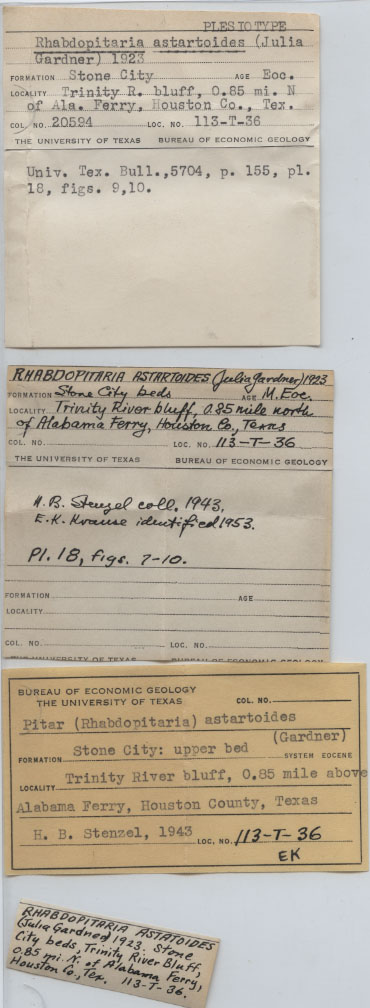 PLESIOTYPE
Rhabdopitaria astartoides (Julia
Gardner) 1923
FORMATION Stone City AGE Eoc.
LOCALITY Trinity R. bluff, 0.85 mi. N
of Ala. Ferry, Houston Co., Tex.
COL. NO. 20594 LOC. NO. 113-T-36
THE UNIVERSITY OF TEXAS BUREAU OF ECONOMIC GEOLOGY
Univ. Tex. Bull.,5704, p. 155, pl.
18, figs. 9,10.
RHABDOPITARIA ASTARTOIDES (Julia Gardner) 1923
FORMATION Stone City beds AGE M. Eoc.
LOCALITY Trinity River bluff, 0.85 mile north
of Alabama Ferry, Houston Co., Texas
COL. NO. LOC. NO. 113-T-36
THE UNIVERSITY OF TEXAS BUREAU OF ECONOMIC GEOLOGY
H. B. Stenzel coll. 1943.
E. K. Krause identified 1953.
Pl. 18, figs. 7-10.
FORMATION AGE
LOCALITY
COL. NO. LOC. NO.
THE UNIVERSITY OF TEXAS BUREAU OF ECONOMIC GEOLOGY
BUREAU OF ECONOMIC GEOLOGY
THE UNIVERSITY OF TEXAS COL. NO.
Pitar (Rhabdopitaria) astartoides
(Gardner)
FORMATION Stone City: upper bed SYSTEM EOCENE
LOCALITY Trinity River bluff, 0.85 mile above
Alabama Ferry, Houston County, Texas
H. B. Stenzel, 1943 LOC. NO. 113-T-36
EK
RHABDOPITARIA ASTATOIDES
(Julia Gardner) 1923. Stone
City beds, Trinity River Bluff,
0.85 mi. N. of Alabama Ferry,
Houston Co., Tex. 113-T-36.